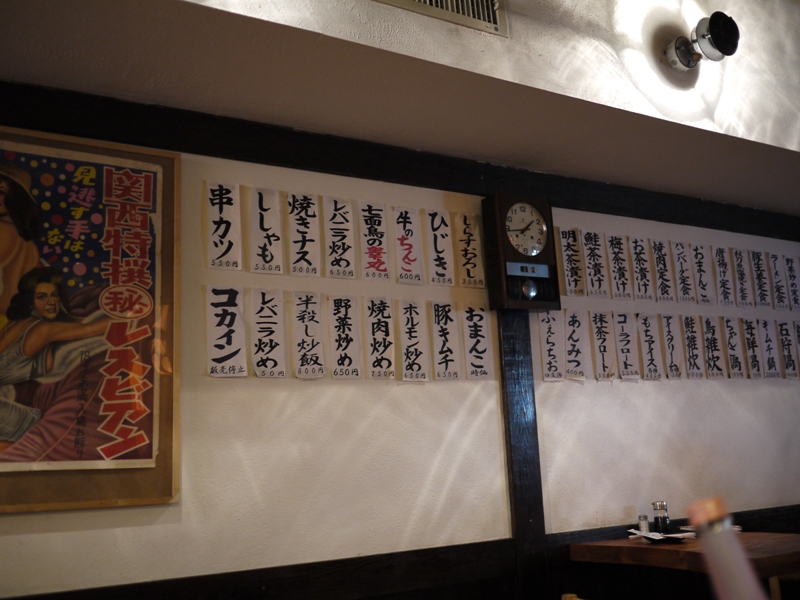 見逃す手はな
関西特撰㊙レスビアン
串カツ
550円
ししゃも
550円
焼きナス
500円
レバニラ炒め
650円
七面鳥の睾丸
牛のちんこ
600円
ひじき
450円
しらすおろし
コカイン
販売停止
レバニラ炒め
半殺し炒飯
800円
野菜炒め
650円
焼肉炒め
750円
ホルモン炒め
豚キムチ
650円
おまんこ
時価
明太茶漬け
鮭茶漬け
梅茶漬け
お茶漬け
焼肉定食
ハンバーグ定食
おまんこ
唐揚げ定食
豚生姜定食
ラーメン定食
ふぇらちお
あんみつ
400円
抹茶フロート
コーラフロート
もちアイス
アイスクリーム
鮭雑炊
鳥雑炊
ちゃんこ鍋
海鮮鍋
キムチ鍋
石狩鍋